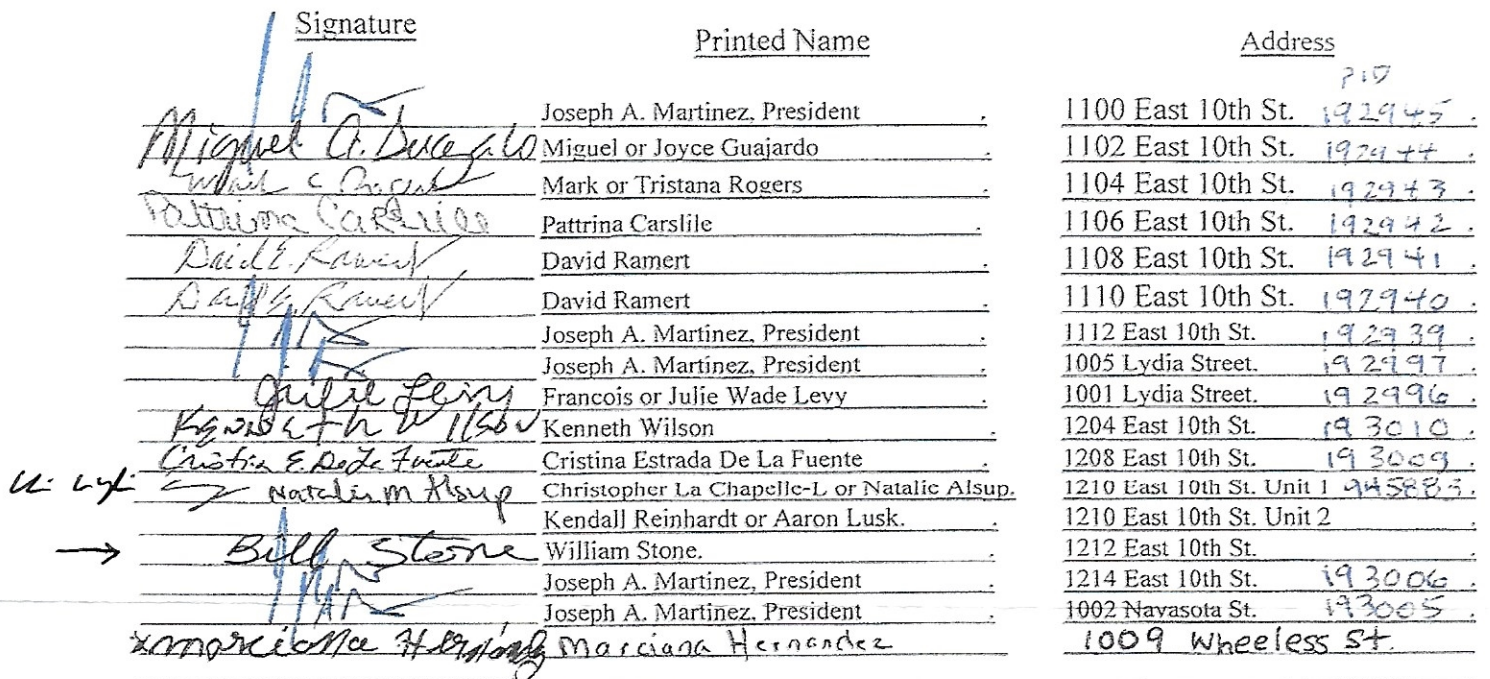 Signature Printed Name Address
PID
Joseph A. Martinez, President . 1100 East 10th St. 192945 .
Miguel Miguel or Joyce Guajardo . 1102 East 10th St. 192944 .
Mark or Tristana Rogers . 1104 East 10th St. 192943 .
Pattrina Pattrina Carslile . 1106 East 10th St. 192942 .
David E. Ramert David Ramert . 1108 East 10th St. 192941 .
David E. Ramert David Ramert . 1110 East 10th St. 192940 .
Joseph A. Martinez, President . 1112 East 10th St. 192939 .
Joseph A. Martinez, President . 1005 Lydia Street. 192997 .
Julie Levy Francois or Julie Wade Levy . 1001 Lydia Street. 192996 .
Kenneth Wilson Kenneth Wilson . 1204 East 10th St. 193010 .
Cristina E. De La Fuente Cristina Estrada De La Fuente . 1208 East 10th St. 193009 .
Natalie M Alsup Christopher La Chapelle-L or Natalie Alsup. 1210 East 10th St. Unit 1 945883 .
Kendall Reinhardt or Aaron Lusk. . 1210 East 10th St. Unit 2 .
→ Bill Stone William Stone. . 1212 East 10th St. .
Joseph A. Martinez, President . 1214 East 10th St. 193006 .
Joseph A. Martinez, President . 1002 Navasota St. 193005 .
x Marciana Hernandez Marciana Hernandez 1009 Wheeless St.